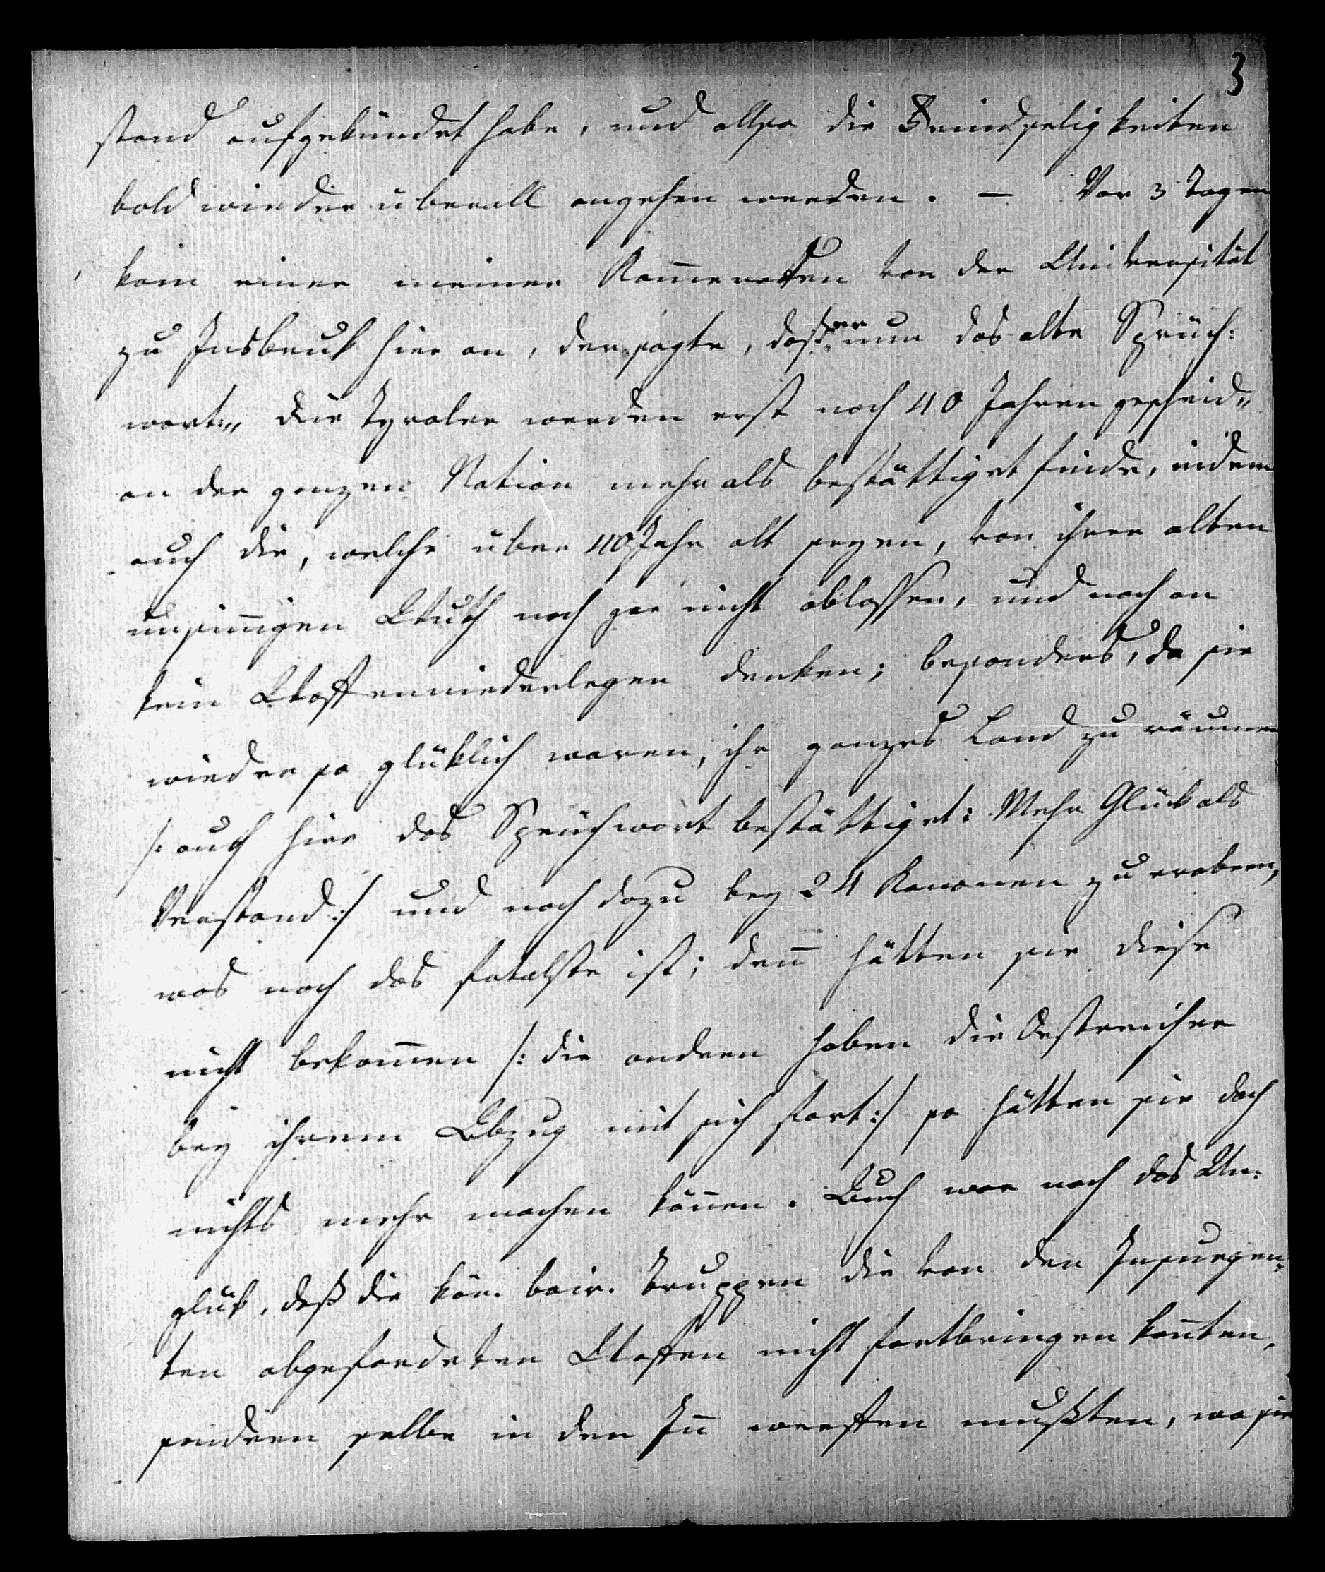 3
stand aufgekündet habe, und allso die Feindseligkeiten
bald wieder überall angehen werden. — Vor 3 Tagen
kam einer meiner Kammeraden von der Universität
zu Insbruk hier an, der sagte, daß er nun das alte Sprüch:
wort „ die Tyroler werden erst nach 40 Jahren gescheid„
an der ganzen Nation mehr als bestättiget finde, indem
auch die, welche über 40 Jahr alt seyen, von ihrer alten
unsinnigen Wuth noch gar nicht ablassen, und noch an
kein Waffenniederlegen denken; besonders, da sie
wieder so glüklich waren, ihr ganzes Land zu räumen
/: auch hier das Sprüchwort bestättiget: Mehr Glück als
Verstand :/ und noch dazu bey 24 Kanonen zu erobern,
was noch das fatalste ist; denn hätten sie diese
nicht bekommen /: die andern haben die Oestreicher
bey ihrem Abzug mit sich fort :/ so hätten sie doch
nichts mehr machen können. Auch war noch das Un:
glük, daß die kön. bair. Truppen die von den Insurgen:
ten abgeforderten Waffen nicht fortbringen konnten,
sondern selbe in den Inn werffen mußten, wo sie